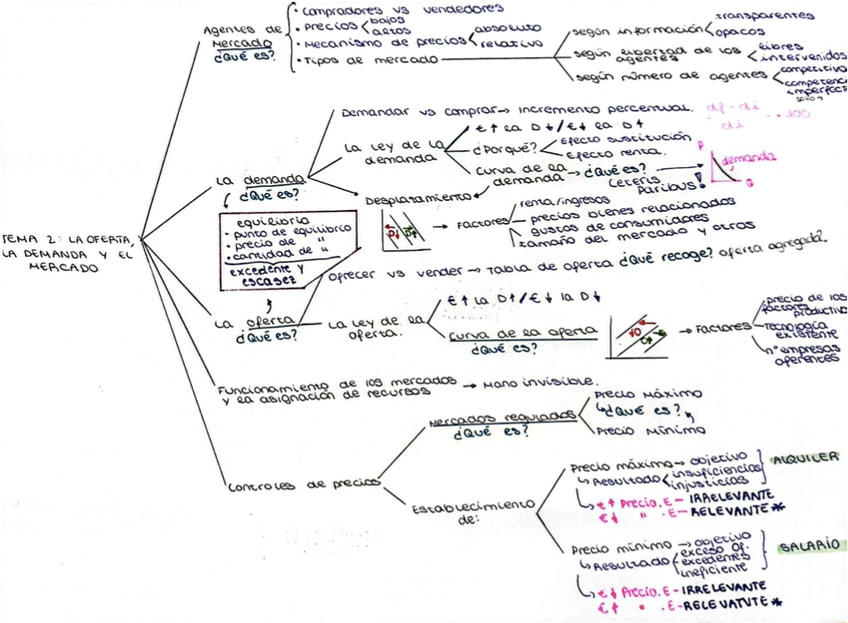 TEMA 2: LA OFERTA,
LA DEMANDA Y EL
MERCADO
Agentes de
Mercado
¿Qué es?
• compradores vs vendedores
• Precios bajos
altos
• Mecanismo de precios absoluto
relativo
• Tipos de mercado
según información transparentes
opacos
según libertad de los
agentes
libres
intervenidos
según número de agentes competitivo
competencia
imperfecta
La demanda
¿Qué es?
Demandar vs comprar → Incremento percentual. df - di
di
. 100
La Ley de la
demanda
€ ↑ la D ↓ / € ↓ la D ↑
¿Porqué? Efecto sustitución
Efecto renta.
curva de la
demanda → ¿Qué es?
Ceteris
Paribus!
P
demanda
Q
Desplazamiento
D↓ D↑
→ Factores
renta/ingresos
precios bienes relacionados
gustos de consumidores
tamaño del mercado y otros
equilibrio
• punto de equilibrio
• precio de "
• cantidad de "
excedente y
escasez
La oferta
¿Qué es?
Ofrecer vs vender → Tabla de oferta ¿Qué recoge? oferta agregada?
La Ley de la
oferta.
€ ↑ la O↑ / € ↓ la O ↓
Curva de la oferta
¿Qué es?
↓O O↑
→ Factores
precio de los
factores
productivos
tecnología
existente
nº empresas
oferentes
Funcionamiento de los mercados
y la asignación de recursos → Mano invisible.
Controles de precios
Mercados regulados
¿Qué es?
Precio Máximo
↳ ¿Qué es?
Precio Mínimo
Establecimiento
de:
Precio máximo → objetivo
↳ Resultado insuficiencias
injusticias
ALQUILER
€ ↑ Precio.E - IRRELEVANTE
€ ↓ " .E - RELEVANTE *
Precio mínimo → objetivo
↳ Resultado exceso Of.
excedentes
ineficiente
SALARIO
€ ↓ Precio.E - IRRELEVANTE
€ ↑ " .E - RELEVATVTE *